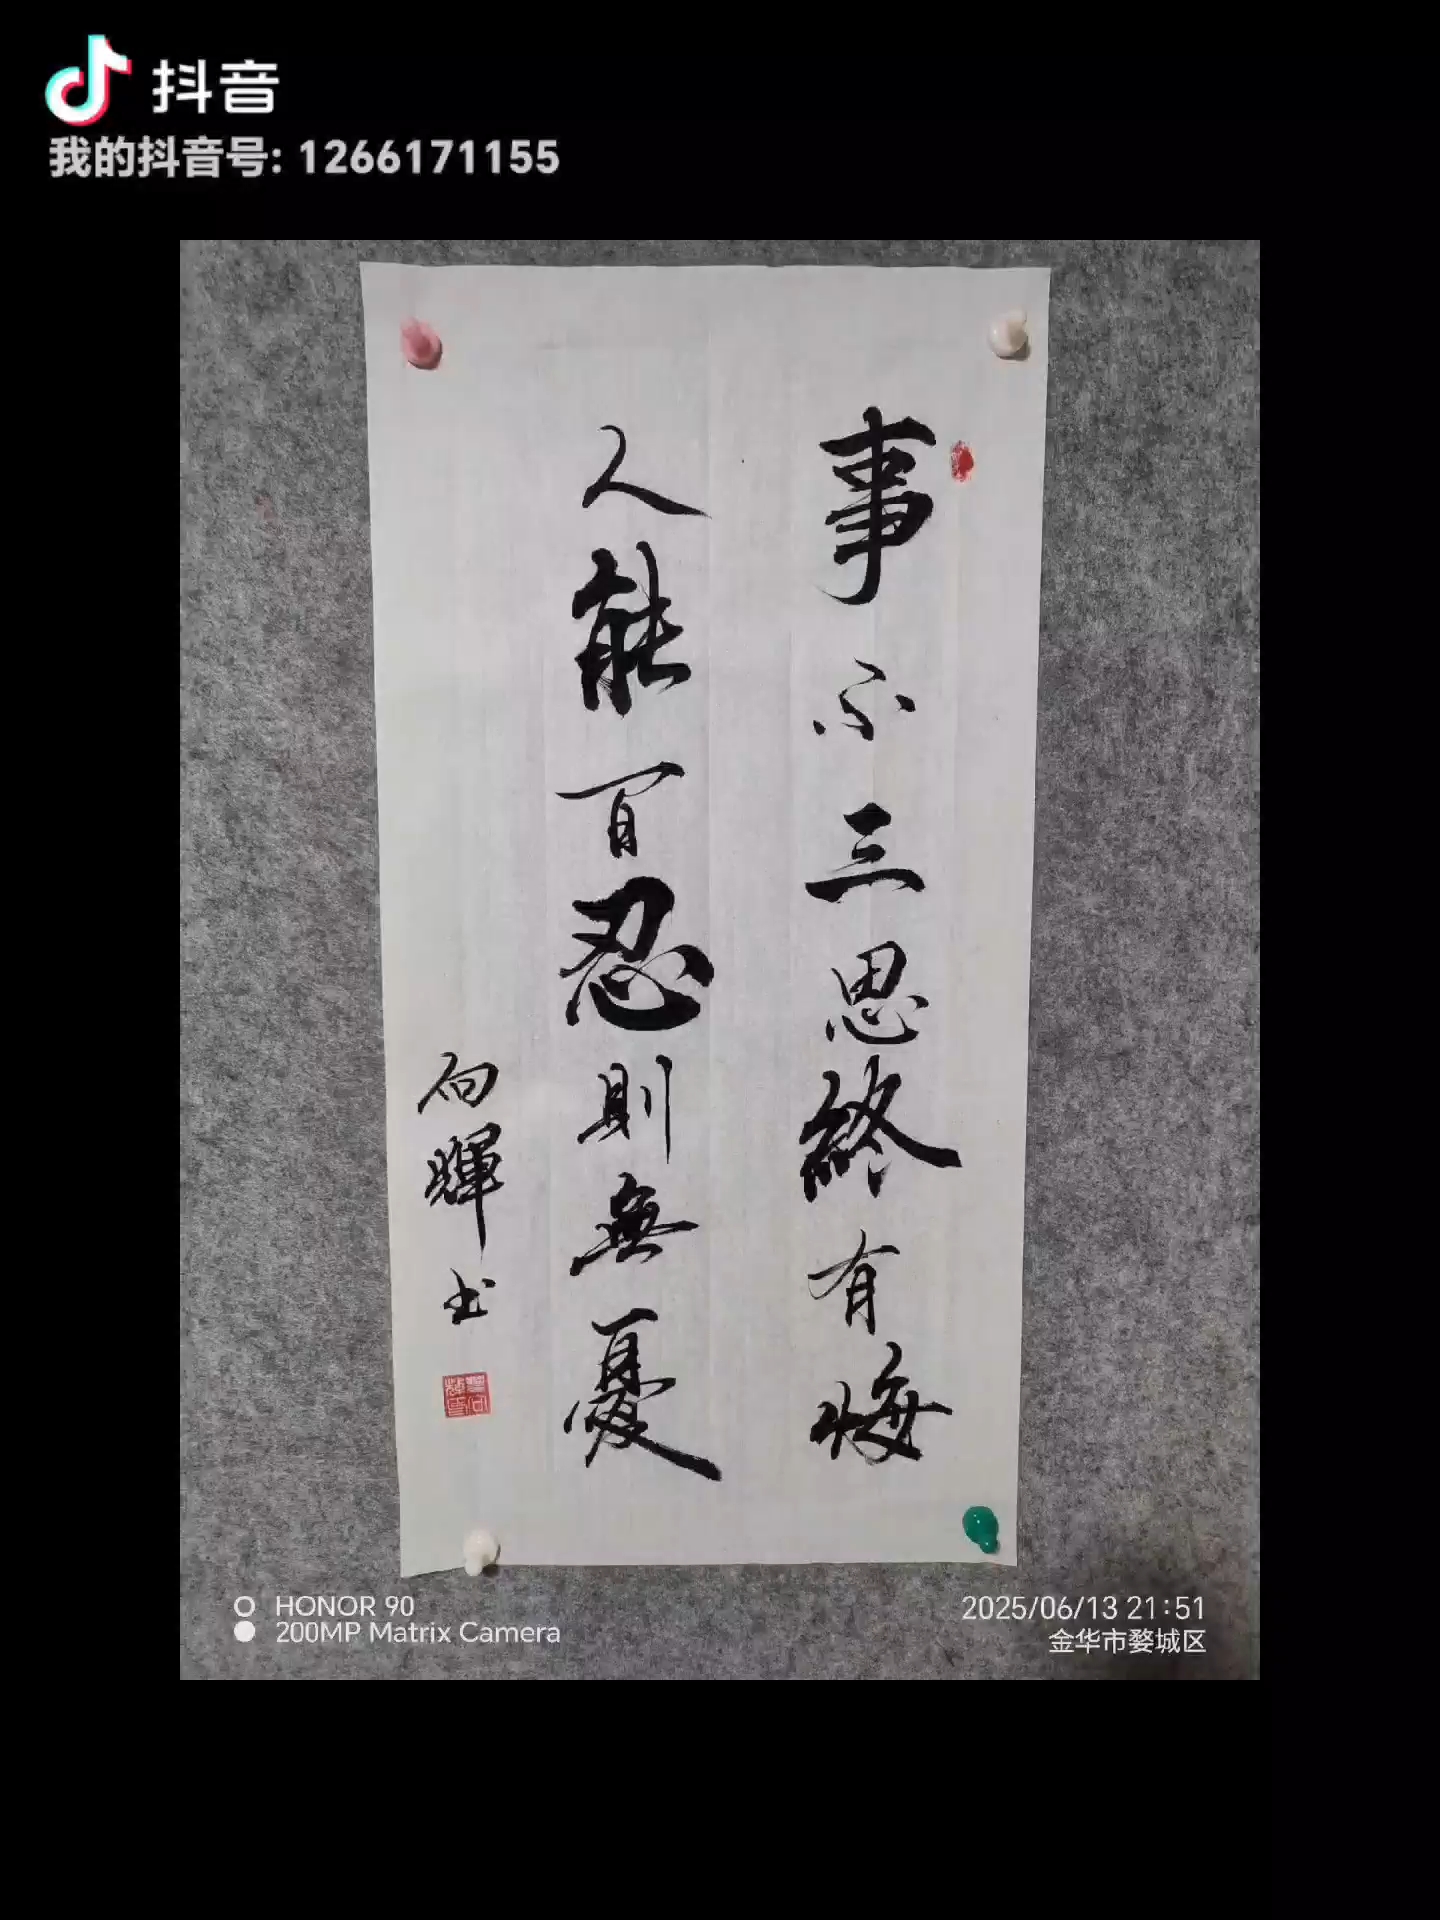 抖音
我的抖音号: 1266171155
事不三思終有悔
人能百忍則無憂
向輝书
HONOR 90
200MP Matrix Camera
2025/06/13 21:51
金华市婺城区